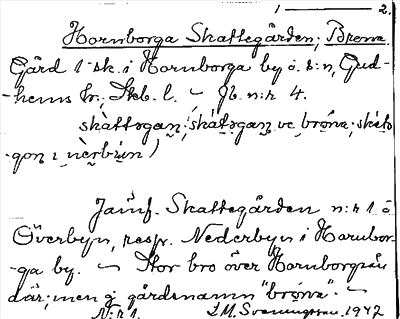 1 ——— 2.
Hornborga Skattegården; Brona
Gård 1 sk. i Hornborga by o. s:n, Gud-
-hems hr, Skb. l. — Jb. n:r 4.
skàttəgan; skátəgaṇ vɛ brǫ́na; skátə-
-gǫn ı nèrbún)
Jämf. Skattegården n:r 1 o
Överbyn, resp. Nederbyn i Hornbor-
-ga by. — Stor bro över Hornborgaån
där; men ej gårdsnamn "brǫ́na". —
N:r 1. I. M. Svenungsson. 1942